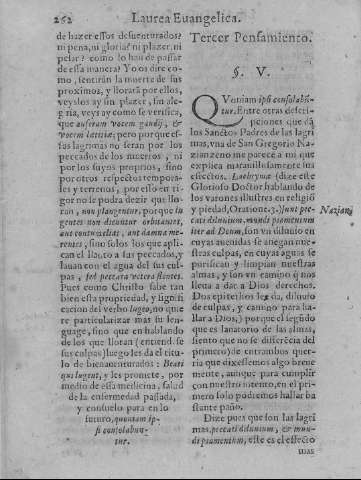 262 Laurea Euangelica.
de hazer essos desuenturados?
ni pena, ni gloria? ni plazer, ni
pesar? como lo han de passar
de essa manera? Yo os dire co-
mo, sentirán la muerte de sus
proximos, y llorará por ellos,
veyslos ay sin plazer, sin ale-
gria, veys ay como se verifica,
que auferam vocem gaudij, &
vocem lætitiæ; pero porque es-
sas lagrimas no seran por los
peccados de los muertos, ni
por los suyos proprios, sino
por otros respectos tempora-
les y terrenos, por esso en ri-
gor no se podra dezir que llo-
ran, non plangentur, porque in
gentes non dicuntur
aut damna me-
rentes, sino solo los que apli-
can el llanto a sus peccados, y
lauan con el agua del sus cul-
pas, sed peccata vetera flentes.
Pues como Christo sabe tan
bien esta propriedad, y signifi
cacion del verbo lugeo, no quie
re particularizar mas su len-
guage, sino que en hablando
de los que lloran (entiend. se
sus culpas) luego les da el titu-
lo de bienauenturados: Beati
qui lugent, y les promete, por
medio de essa medicina, salud
de la enfermedad passada,
y consuelo para en lo
futuro, quoniam ip-
si consolabun-
tur.
Tercer Pensamiento.
§. V.
QVoniam ipsi consolabũ-
tur. Entre otras descri-
pciones que dã
los Sanctos Padres de las lagri
mas, vna de San Gregorio Na-
zianzeno me parece a mi que
explica marauillosamente sus
effectos. Lachryma (dize este
Glorioso Doctor hablando de
los varones illustres en religiõ
y piedad, Oratione. 3.) sunt pec-
cati diluuium, mundi piamentum
iter ad Deum, son vn diluuio en
cuyas auenidas se anegan nue-
stras culpas, en cuyas aguas se
purifican y limpian nuestras
almas, y son vn camino q̃ nos
lleua a dar a Dios derechos.
Dos epitetos les da, diluuio
de culpas, y camino para ha-
llar a Dios,) porque el segũdo
que es lauatorio de las almas,
siento que no se differẽcia del
primero) de entrambos quer-
ria que dixessemos algo breue
mente, aunque para cumplir
con nuestro intento, en el pri-
mero solo podremos hallar ba
stante paño.
Dize pues que son las lagri
mas, peccati diluuium, & mun-
di piamentum, este es el effecto
mas
Nazianz